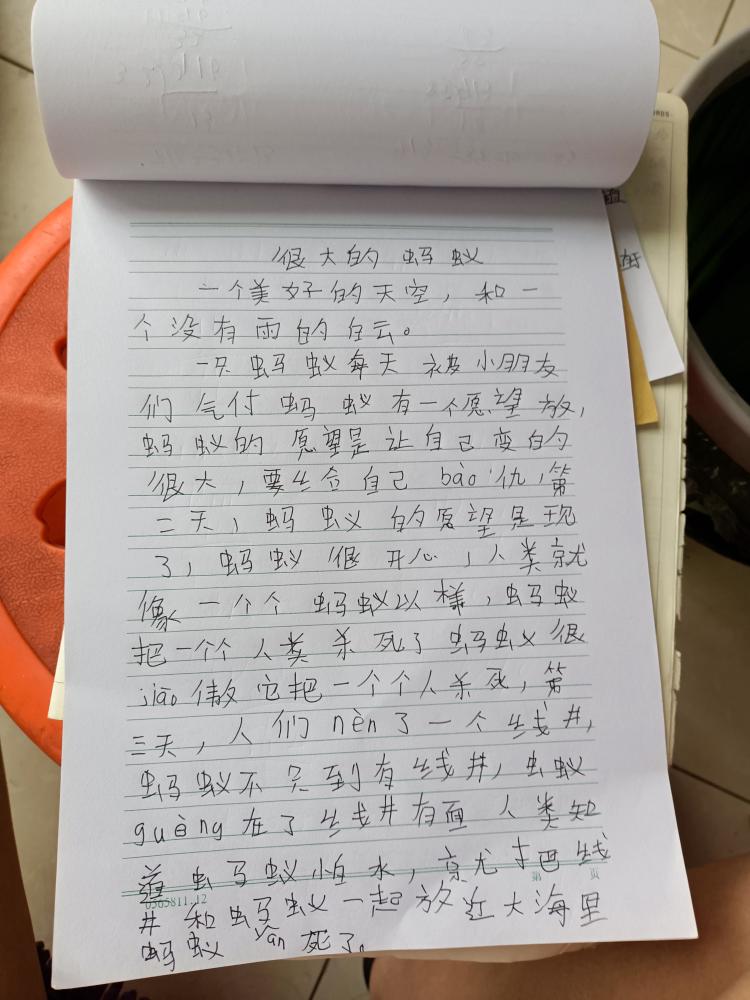 很大的蚂蚁
一个美好的天空，和一
个没有雨的白云。
一只蚂蚁每天被小朋友
们气付蚂蚁有一个愿望放，
蚂蚁的愿望是让自己变的
很大，要给自己bào仇，第
二天，蚂蚁的愿望是现
了，蚂蚁很开心，人类就
像一个个蚂蚁以樣，蚂蚁
把一个个人类杀死了蚂蚁很
jiāo傲它把一个个人杀死，第
三天，人们nèn了一个线井，
蚂蚁不只到有线井，蚂蚁
guèng在了线井有面人类知
蚂蚁怕水，就把线
井和蚂蚁一起放近大海里
蚂蚁yān死了。
0565811.12
第 页